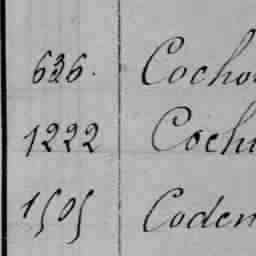 636. Cocho
1222 Coch
1505 Coden